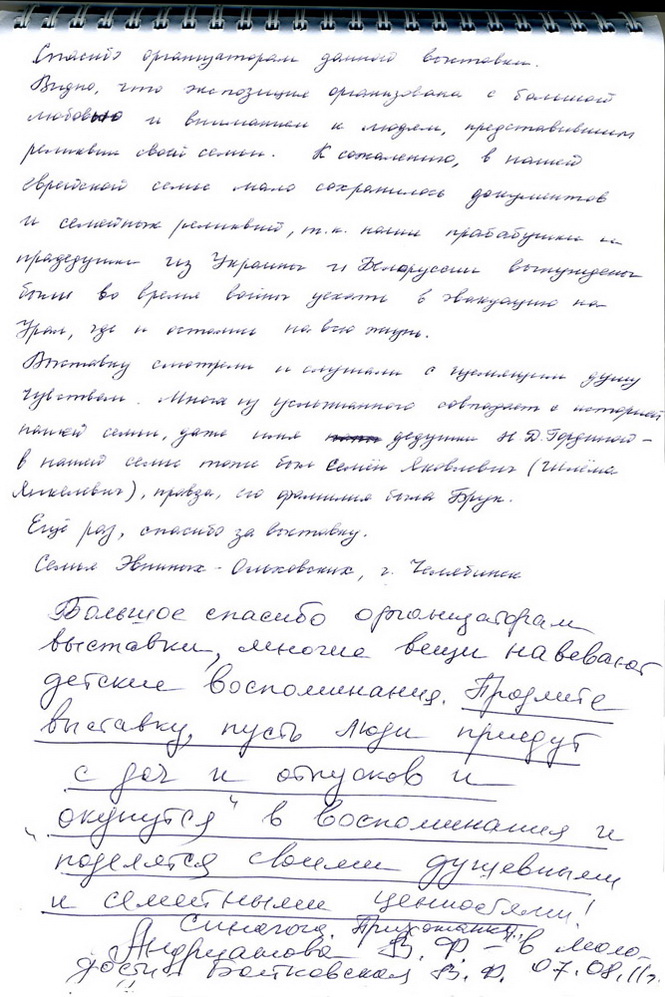 Спасибо организаторам данной выставки.
Видно, что экспозиция организована с большой
любовью и вниманием к людям, представившим
реликвии своей семьи. К сожалению, в нашей
еврейской семье мало сохранилось документов
и семейных реликвий, т.к. наши прабабушки и
прадедушки из Украины и Белоруссии вынуждены
были во время войны уехать в эвакуацию на
Урал, где и остались на всю жизнь.
Выставку смотрели и слушали с щемящим душу
чувством. Многое из услышанного совпадает с историей
нашей семьи, даже имя дедушки Н.Д. –
в нашей семье тоже был Семён Яковлевич (Шлёма
Янкелевич), правда, его фамилия была Брук.
Ещё раз, спасибо за выставку.
Семья - Ольховских, г. Челябинск
Большое спасибо организаторам
выставки, многие вещи навевают
детские воспоминания. Продлите
выставку, пусть люди приедут
с дач и отпусков и
„окунутся" в воспоминания и
поделятся своими душевными
и семейными ценностями!
Синагога. Прихожанка
В. Ф. – в моло-
дости Войковская В. Ф. 07.08.11г.